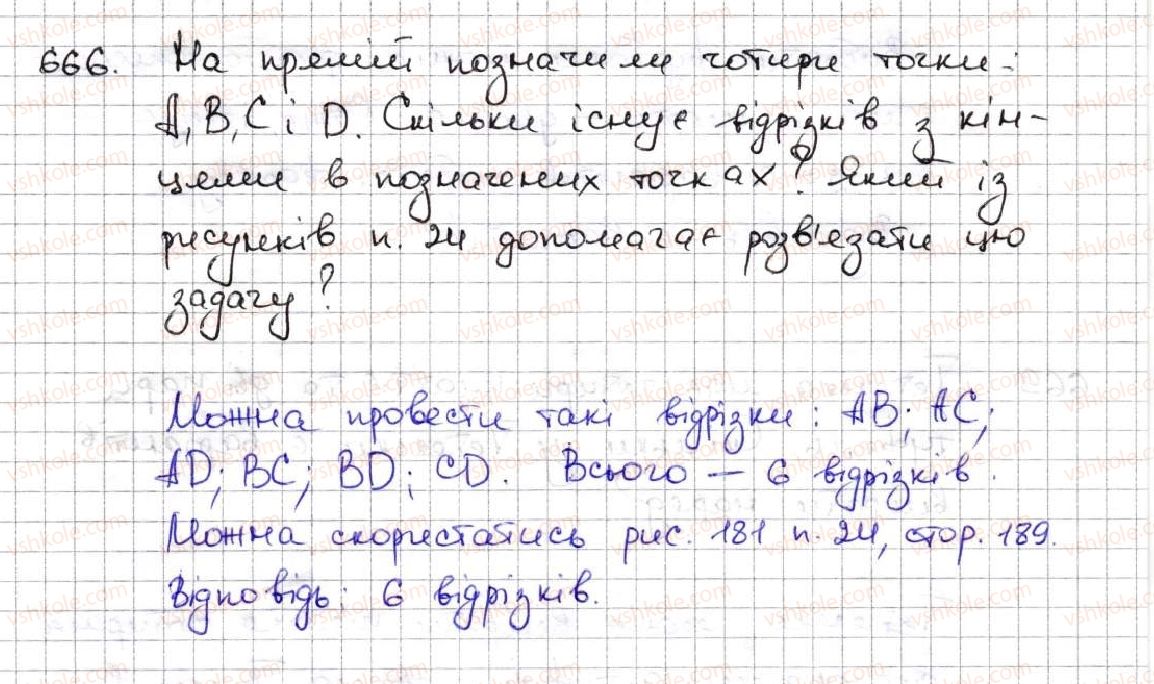 666. На прямій позначили чотири точки:
A, B, C і D. Скільки існує відрізків з кін-
цями в позначених точках? Який із
рисунків п. 24 допомагає розв'язати цю
задачу?
Можна провести такі відрізки: AB; AC;
AD; BC; BD; CD. Всього — 6 відрізків.
Можна скористатись рис. 181 п. 24, стор. 189.
Відповідь: 6 відрізків.